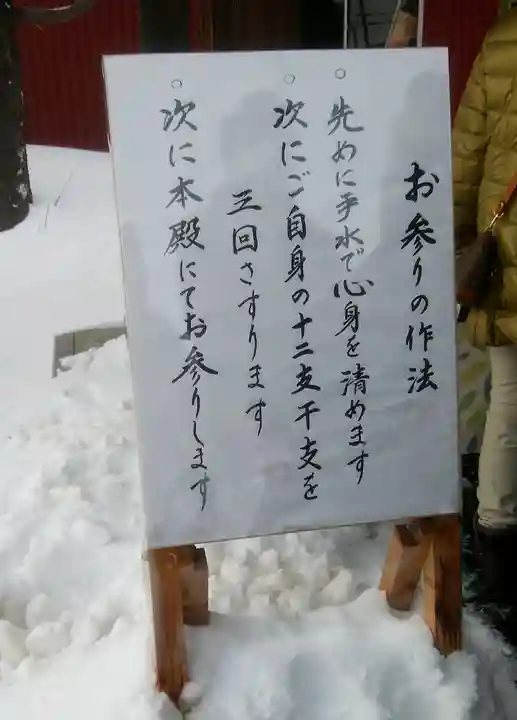 お参りの作法
○先めに手水で心身を清めます
○次にご自身の十二支干支を
三回さすります
○次に本殿にてお参りします